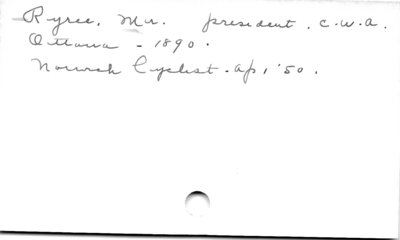 Ryrie, Mr. president. C.W.A.
Ottawa - 1890.
Cyclist. Ap 1 '50.